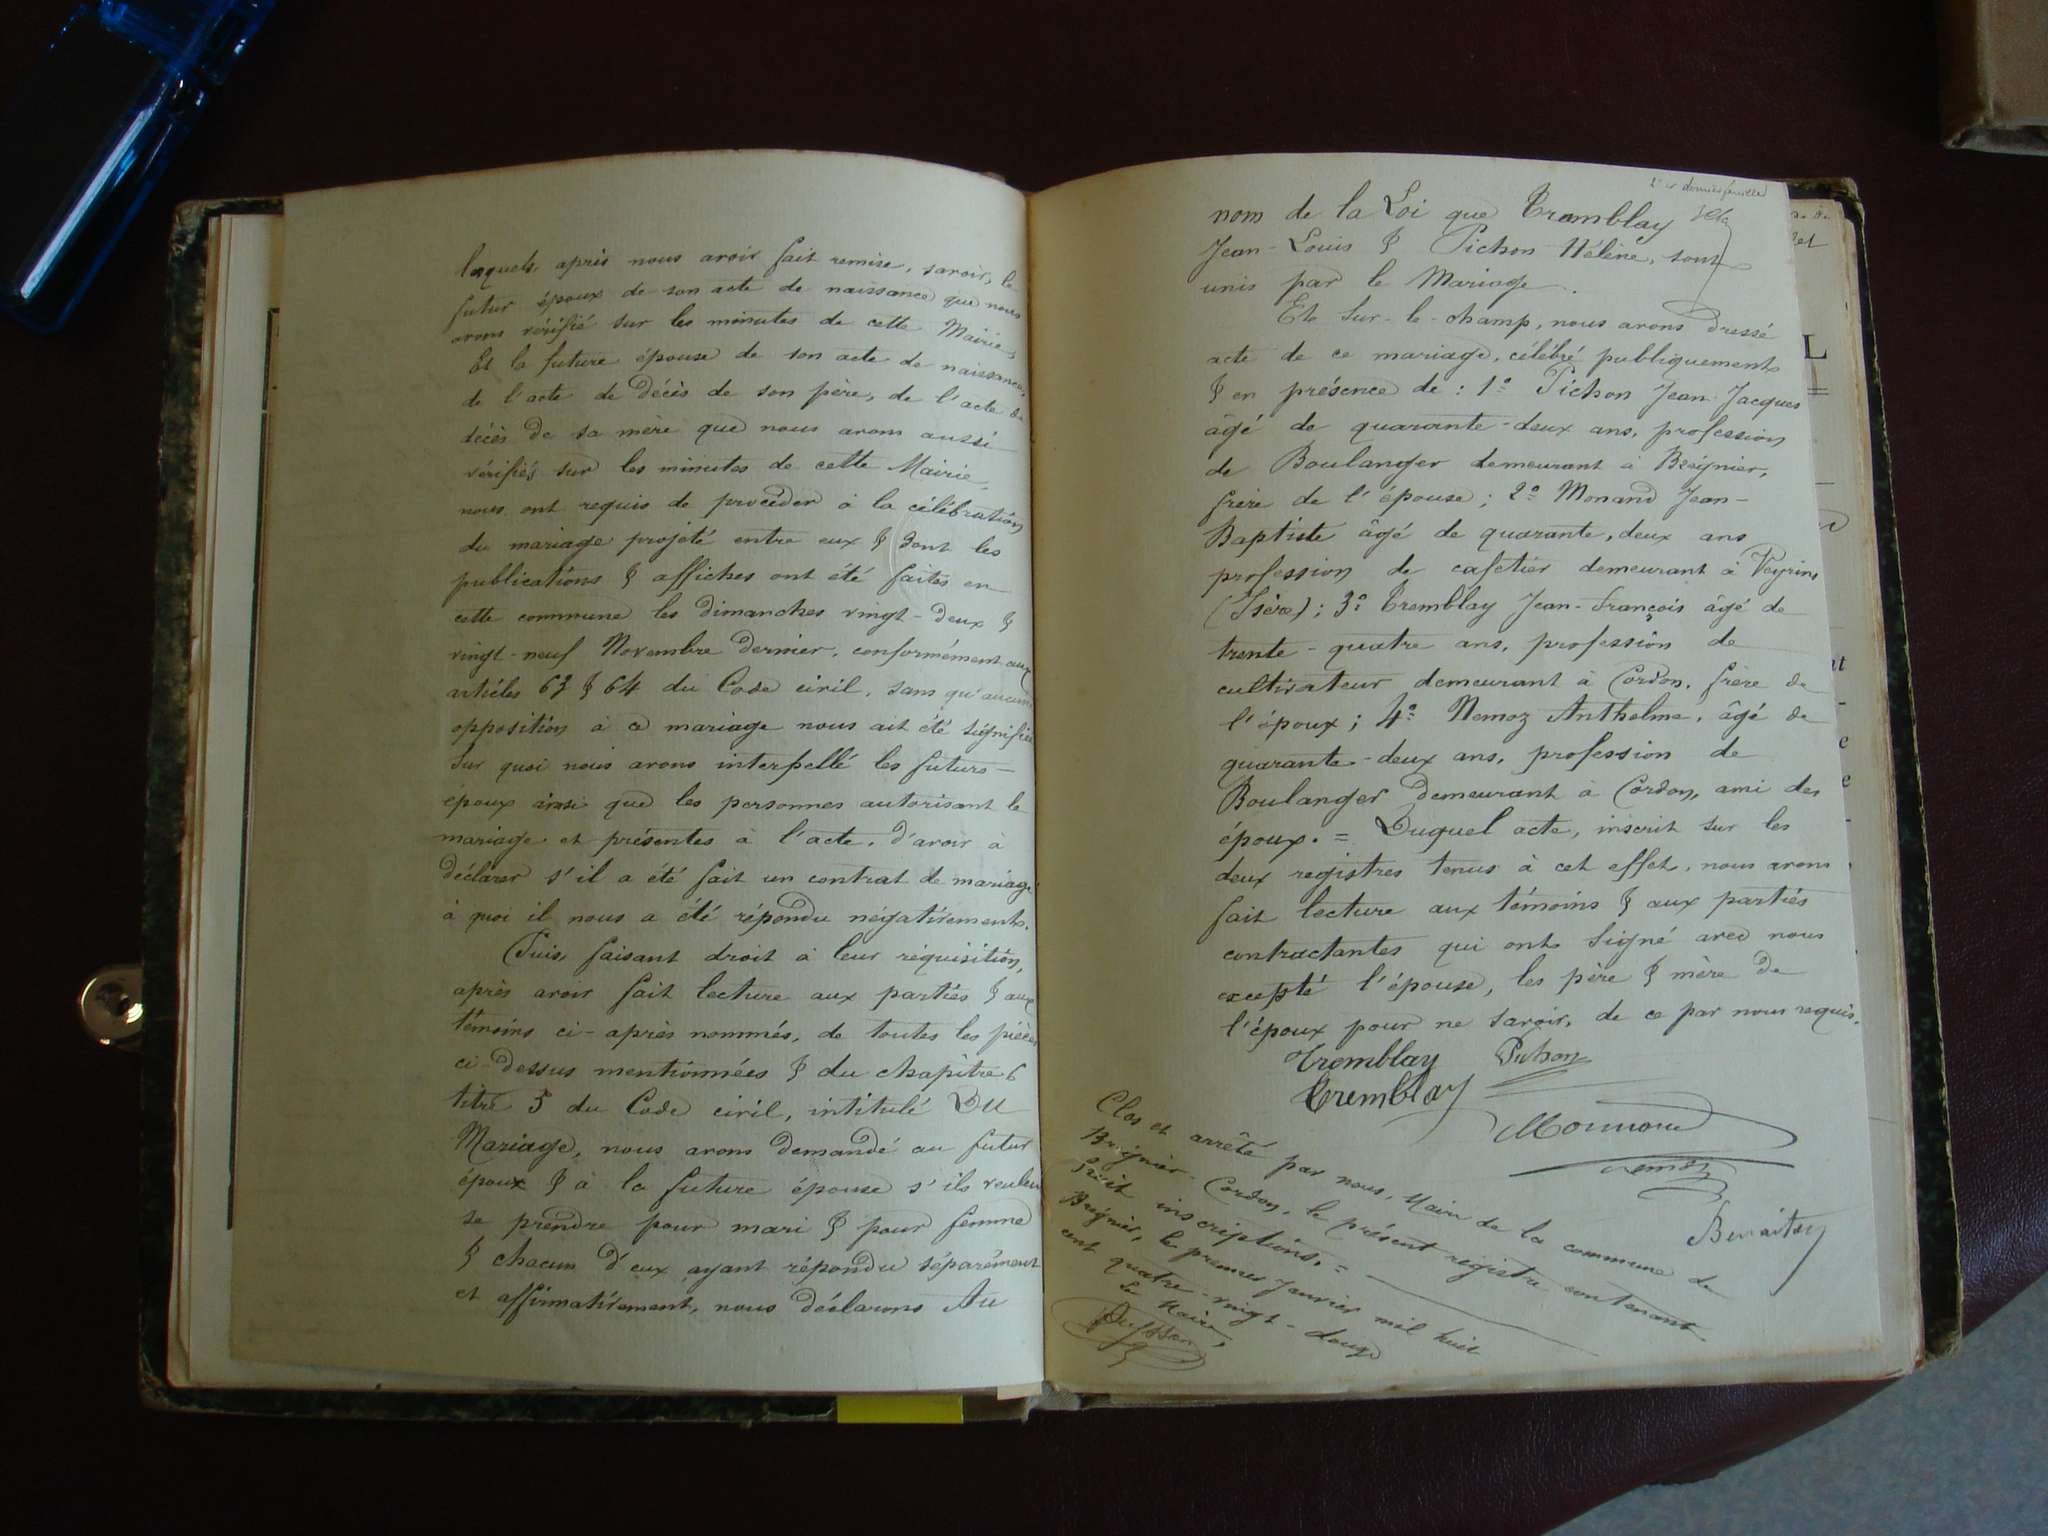 lesquels, après nous avoir fait remise, savoir, le
futur époux de son acte de naissance que nous
avons vérifié sur les minutes de cette Mairie,
Et la future épouse de son acte de naissance,
de l'acte de décès de son père, de l'acte de
décès de sa mère que nous avons aussi
vérifiés sur les minutes de cette Mairie,
nous ont requis de procéder à la célébration
du mariage projeté entre eux & dont les
publications & affiches ont été faites en
cette commune les dimanches vingt-deux &
vingt-neuf Novembre dernier, conformément aux
articles 63 & 64 du Code civil, sans qu'aucune
opposition à ce mariage nous ait été signifiée
Sur quoi nous avons interpellé les futurs
époux ainsi que les personnes autorisant le
mariage et présentes à l'acte, d'avoir à
déclarer s'il a été fait un contrat de mariage
à quoi il nous a été répondu négativement.
Puis, faisant droit à leur réquisition,
après avoir fait lecture aux parties & aux
témoins ci-après nommés, de toutes les pièces
ci-dessus mentionnées & du chapitre 6
titre 5 du Code civil, intitulé Du
Mariage, nous avons demandé au futur
époux & à la future épouse s'ils veulent
se prendre pour mari & pour femme
& chacun d'eux ayant répondu séparément
et affirmativement, nous déclarons Au
dernier feuillet
nom de la Loi que Tremblay
Jean-Louis & Pichon Hélène, sont
unis par le Mariage.
Et Sur-le-champ, nous avons dressé
acte de ce mariage, célébré publiquement
& en présence de : 1º Pichon Jean Jacques
âgé de quarante-deux ans, profession
de Boulanger demeurant à Brégnier,
frère de l'épouse ; 2º Monand Jean-
Baptiste âgé de quarante-deux ans
profession de cafetier demeurant à Veyrins
(Isère) ; 3º Tremblay Jean-François âgé de
trente-quatre ans, profession de
cultivateur demeurant à Cordon, frère de
l'époux ; 4º Nemoz Anthelme, âgé de
quarante-deux ans, profession de
Boulanger demeurant à Cordon, ami des
époux. = Duquel acte, inscrit sur les
deux registres tenus à cet effet, nous avons
fait lecture aux témoins & aux parties
contractantes qui ont signé avec nous
excepté l'épouse, les père & mère de
l'époux pour ne savoir, de ce par nous requis.
Tremblay Pichon
Tremblay
Monnand
Nemoz
Benaitoy
Clos et arrêté par nous, Maire de la commune de
Brégnier-Cordon, le présent registre contenant
huit inscriptions. =
Brégnier, le premier Janvier mil huit
cent quatre-vingt-douze
Le Maire,